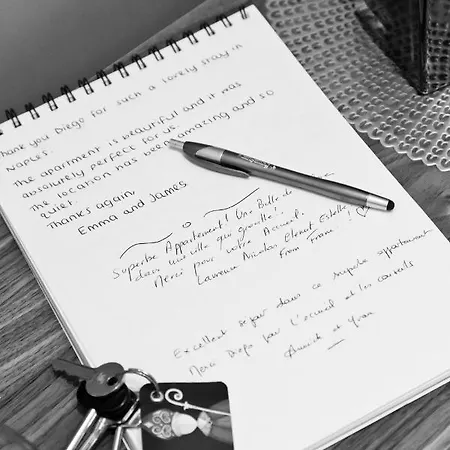 Thank you Diego for such a lovely stay in
Naples.
The apartment is beautiful and it was
absolutely perfect for us.
The location has been amazing and so
quiet.
Thanks again,
Emma and James
Superbe Appartement! Une Bulle de
dans une ville qui grouille!
Merci pour votre Accueil.
Laurence Nicolas Clément Estelle
From France!
Excellent séjour dans ce superbe appartement
Merci Diego pour l'accueil et les conseils
et Yvan